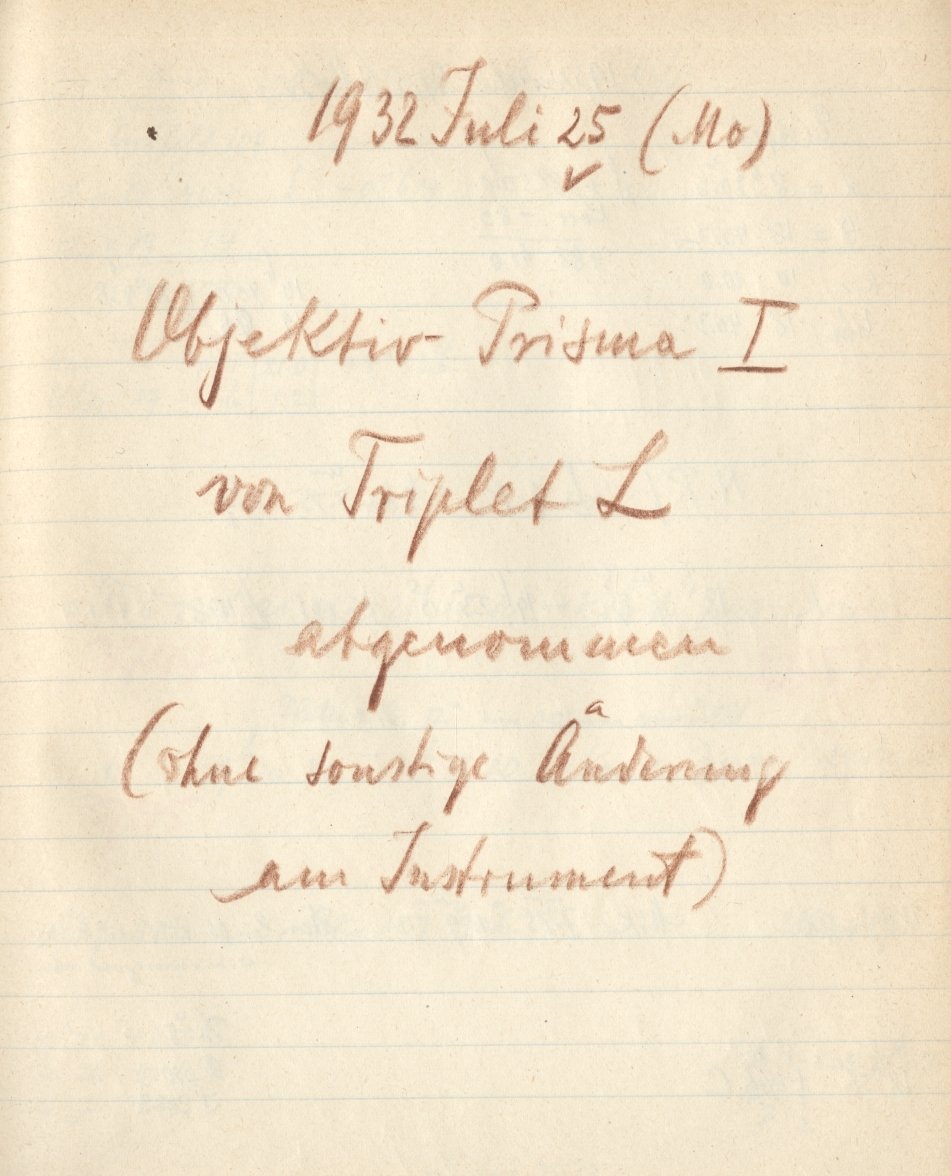 1932 Juli 25 (Mo)
Objektiv Prisma I
von Triplet L
abgenommen
(ohne sonstige Änderung
am Instrument)